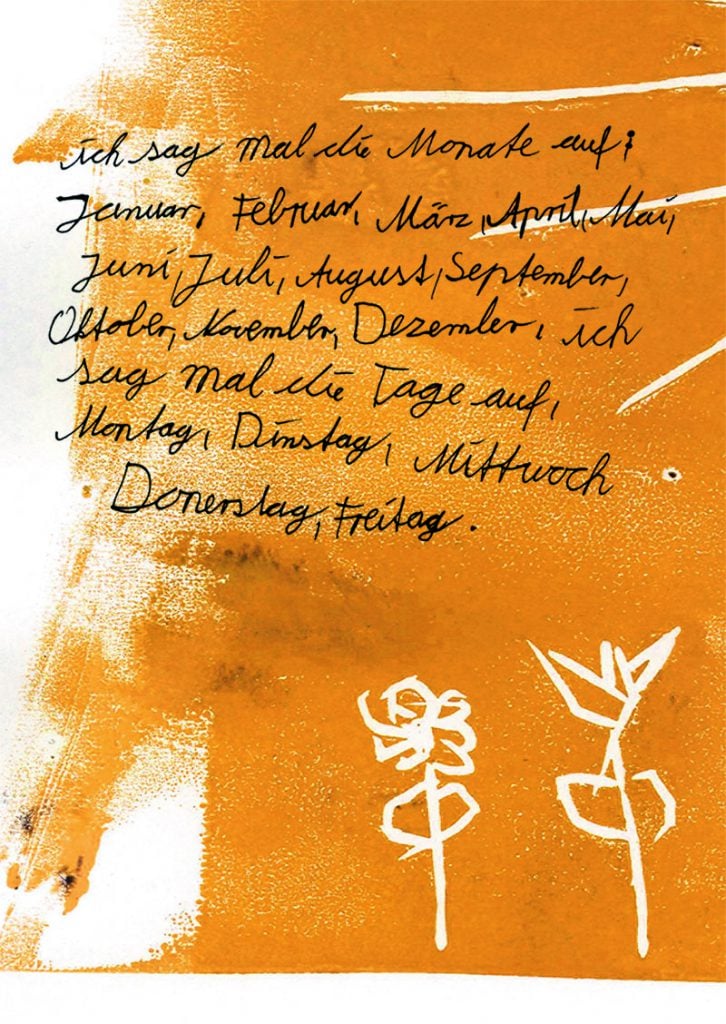 ich sag mal die Monate auf:
Januar, Februar, März, April, Mai,
Juni, Juli, August, September,
Oktober, November, Dezember, ich
sag mal die Tage auf,
Montag, Dinstag, Mittwoch
Donerstag, Freitag.